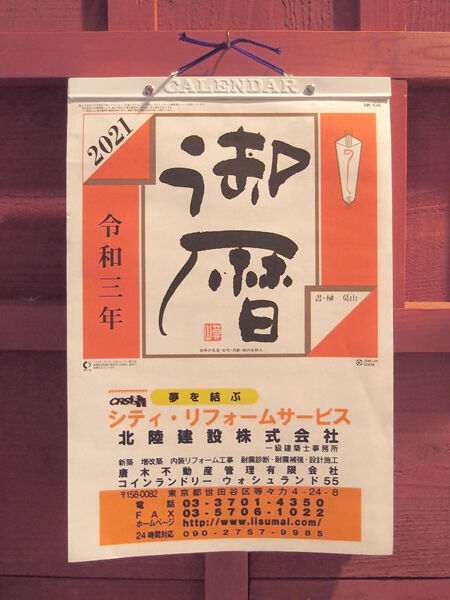 CALENDAR
NK-10A
2021
御暦
令和三年
書・榊 莫山
夢を結ぶ
シティ・リフォームサービス
北陸建設株式会社
一級建築士事務所
新築 増改築 内装リフォーム工事 耐震診断・耐震補強・設計施工
唐木不動産管理有限会社
コインランドリー ウォシュランド55
〒158-0082 東京都世田谷区等々力4-24-8
電話 03-3701-4350
FAX 03-5706-1022
ホームページ http://www.iisumai.com/
24時間対応 090-2757-9985